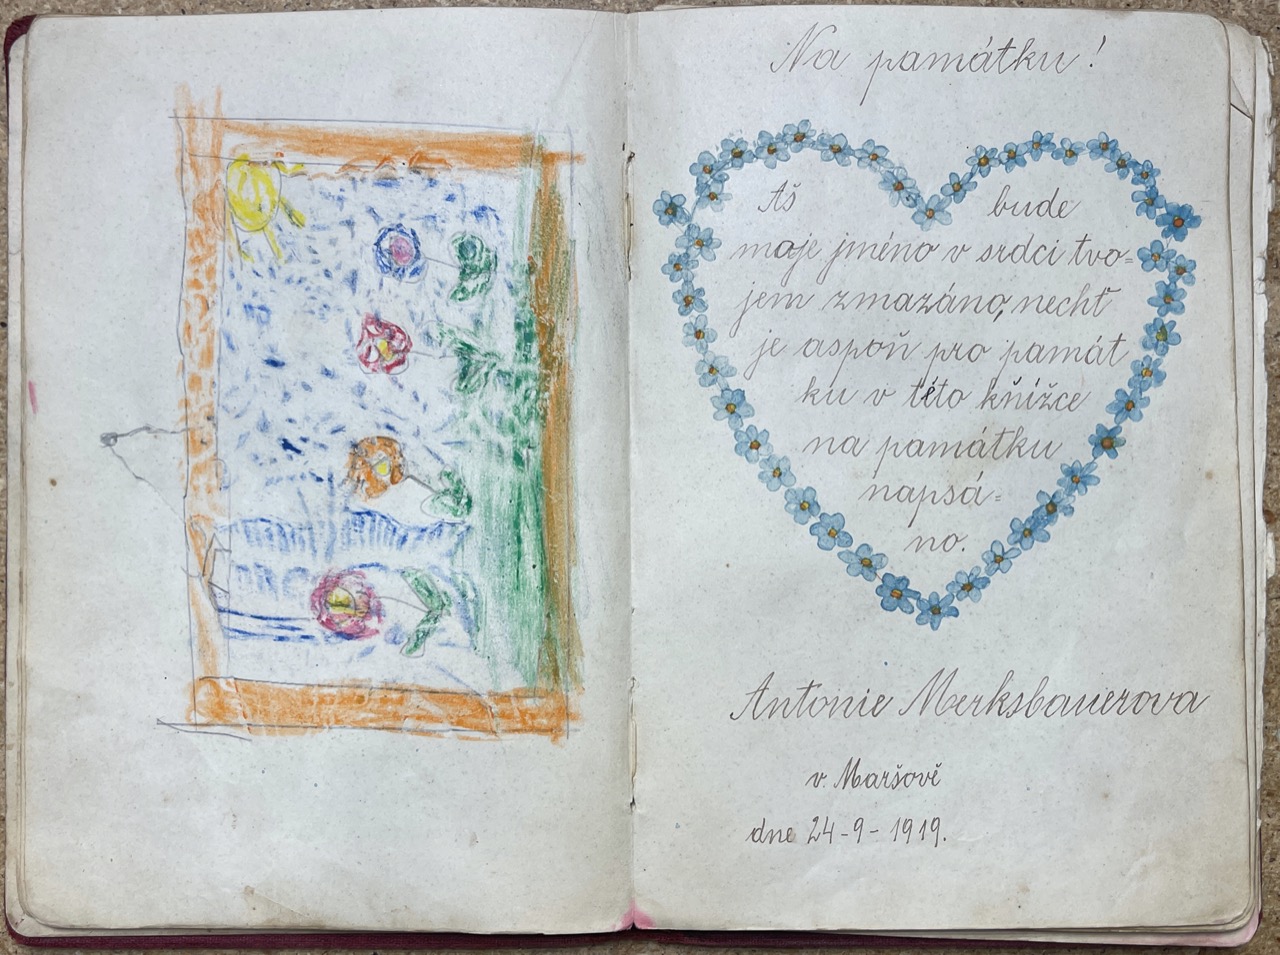 Na památku!
Aš bude
moje jméno v srdci tvo=
jem zmazáno, nechť
je aspoň pro památ
ku v této kňížce
na památku
napsá=
no.
Antonie Merksbauerova
v. Maršově
dne 24-9-1919.